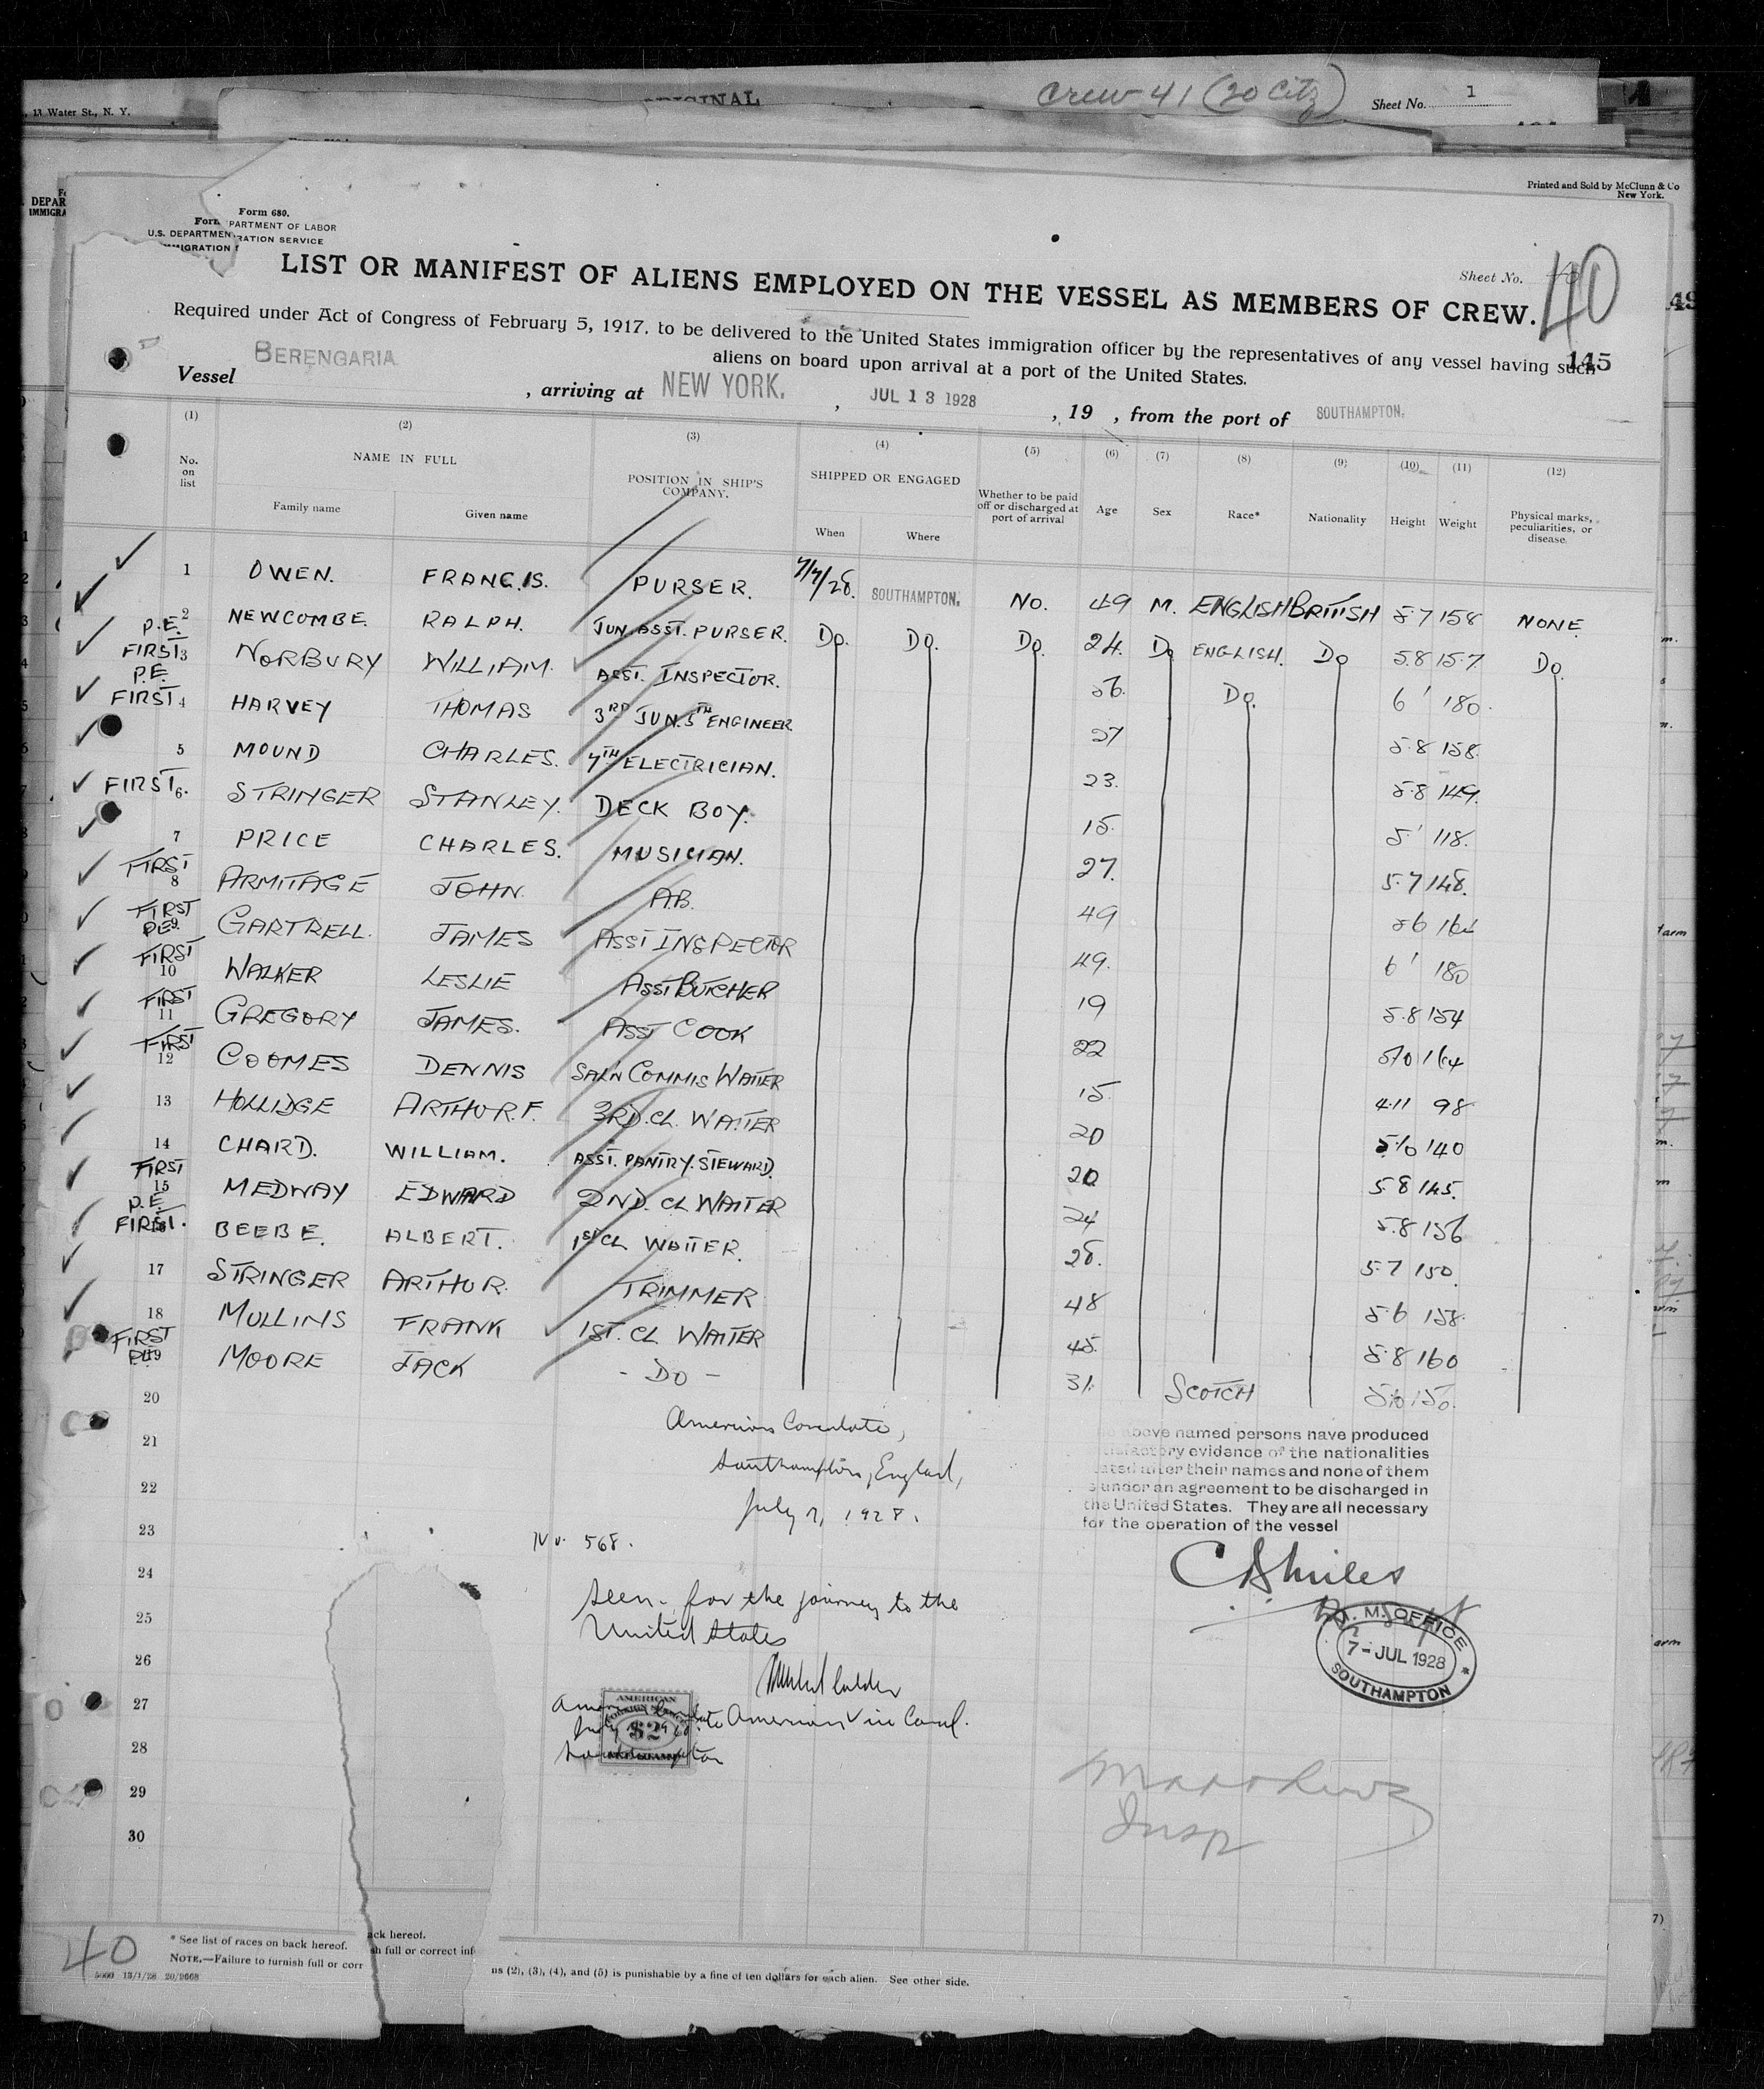 , 11 Water St., N. Y.
ORIGINAL
Crew 41 (20 Citz)
Sheet No. 1
Printed and Sold by McClunn & Co
New York.
Form 680.
U.S. DEPARTMENT OF LABOR
IMMIGRATION SERVICE
LIST OR MANIFEST OF ALIENS EMPLOYED ON THE VESSEL AS MEMBERS OF CREW.
Sheet No. 40
Required under Act of Congress of February 5, 1917, to be delivered to the United States immigration officer by the representatives of any vessel having such
aliens on board upon arrival at a port of the United States.
145
Vessel BERENGARIA , arriving at NEW YORK. , JUL 13 1928 , 19 , from the port of SOUTHAMPTON.
(1) (2) (3) (4) (5) (6) (7) (8) (9) (10) (11) (12)
No. on list NAME IN FULL Family name Given name POSITION IN SHIP'S COMPANY. SHIPPED OR ENGAGED When Where Whether to be paid off or discharged at port of arrival Age Sex Race* Nationality Height Weight Physical marks, peculiarities, or disease.
1 OWEN. FRANCIS. PURSER. 7/7/28. SOUTHAMPTON. NO. 49 M. ENGLISH BRITISH 5 7 158 NONE
2 NEWCOMBE. RALPH. JUN. ASST. PURSER. DO. DO. DO. 24. DO ENGLISH. DO 5.8 157 DO.
P.E. FIRST 3 NORBURY WILLIAM. ASST. INSPECTOR. 56. DO. 6' 180.
P.E. FIRST 4 HARVEY THOMAS 3RD JUN. 5TH ENGINEER. 27 5.8 158.
5 MOUND CHARLES. 7TH ELECTRICIAN. 23. 5.8 149.
FIRST 6. STRINGER STANLEY. DECK BOY. 15. 5' 118.
7 PRICE CHARLES. MUSICIAN. 27. 5.7 148.
FIRST 8 ARMITAGE JOHN. A.B. 49 5 6 164
FIRST P.E. 9. GARTRELL. JAMES ASST INSPECTOR 49. 6' 180
FIRST 10 WALKER LESLIE ASST BUTCHER 19 5.8 154
FIRST 11 GREGORY JAMES. ASST COOK 22 5/10 164
FIRST 12 COOMES DENNIS SALN COMMIS WAITER 15. 4.11 98
13 HOLLIDGE ARTHUR. F. 3RD. CL. WAITER 20 5.10 140
14 CHARD. WILLIAM. ASST. PANTRY. STEWARD. 20 5 8 145.
FIRST 15 MEDWAY EDWARD 2ND. CL WAITER 24 5.8 156
P.E. FIRST. 16 BEEBE. ALBERT. 1ST CL WAITER. 28. 5.7 150.
17 STRINGER ARTHUR. TRIMMER 48 5 6 158.
18 MULLINS FRANK 1ST. CL WAITER 45. 5.8 160
FIRST 19 MOORE JACK - DO - 31. SCOTCH 5.10 150.
20
21
22
23
24
25
26
27
28
29
30
American Consulate,
Southampton, England,
July 7, 1928.
No. 568.
Seen - for the journey to the
United States
American Vice Consul.
AMERICAN
FOREIGN SERVICE
$2
FEE STAMP
above named persons have produced
satisfactory evidence of the nationalities
stated after their names and none of them
is under an agreement to be discharged in
the United States. They are all necessary
for the operation of the vessel
M. M. OFFICE
7 - JUL 1928
SOUTHAMPTON
Insp
40
* See list of races on back hereof.
NOTE.—Failure to furnish full or corr
ack hereof.
sh full or correct inf
ns (2), (3), (4), and (5) is punishable by a fine of ten dollars for each alien. See other side.
5000 13/1/28 20/9668